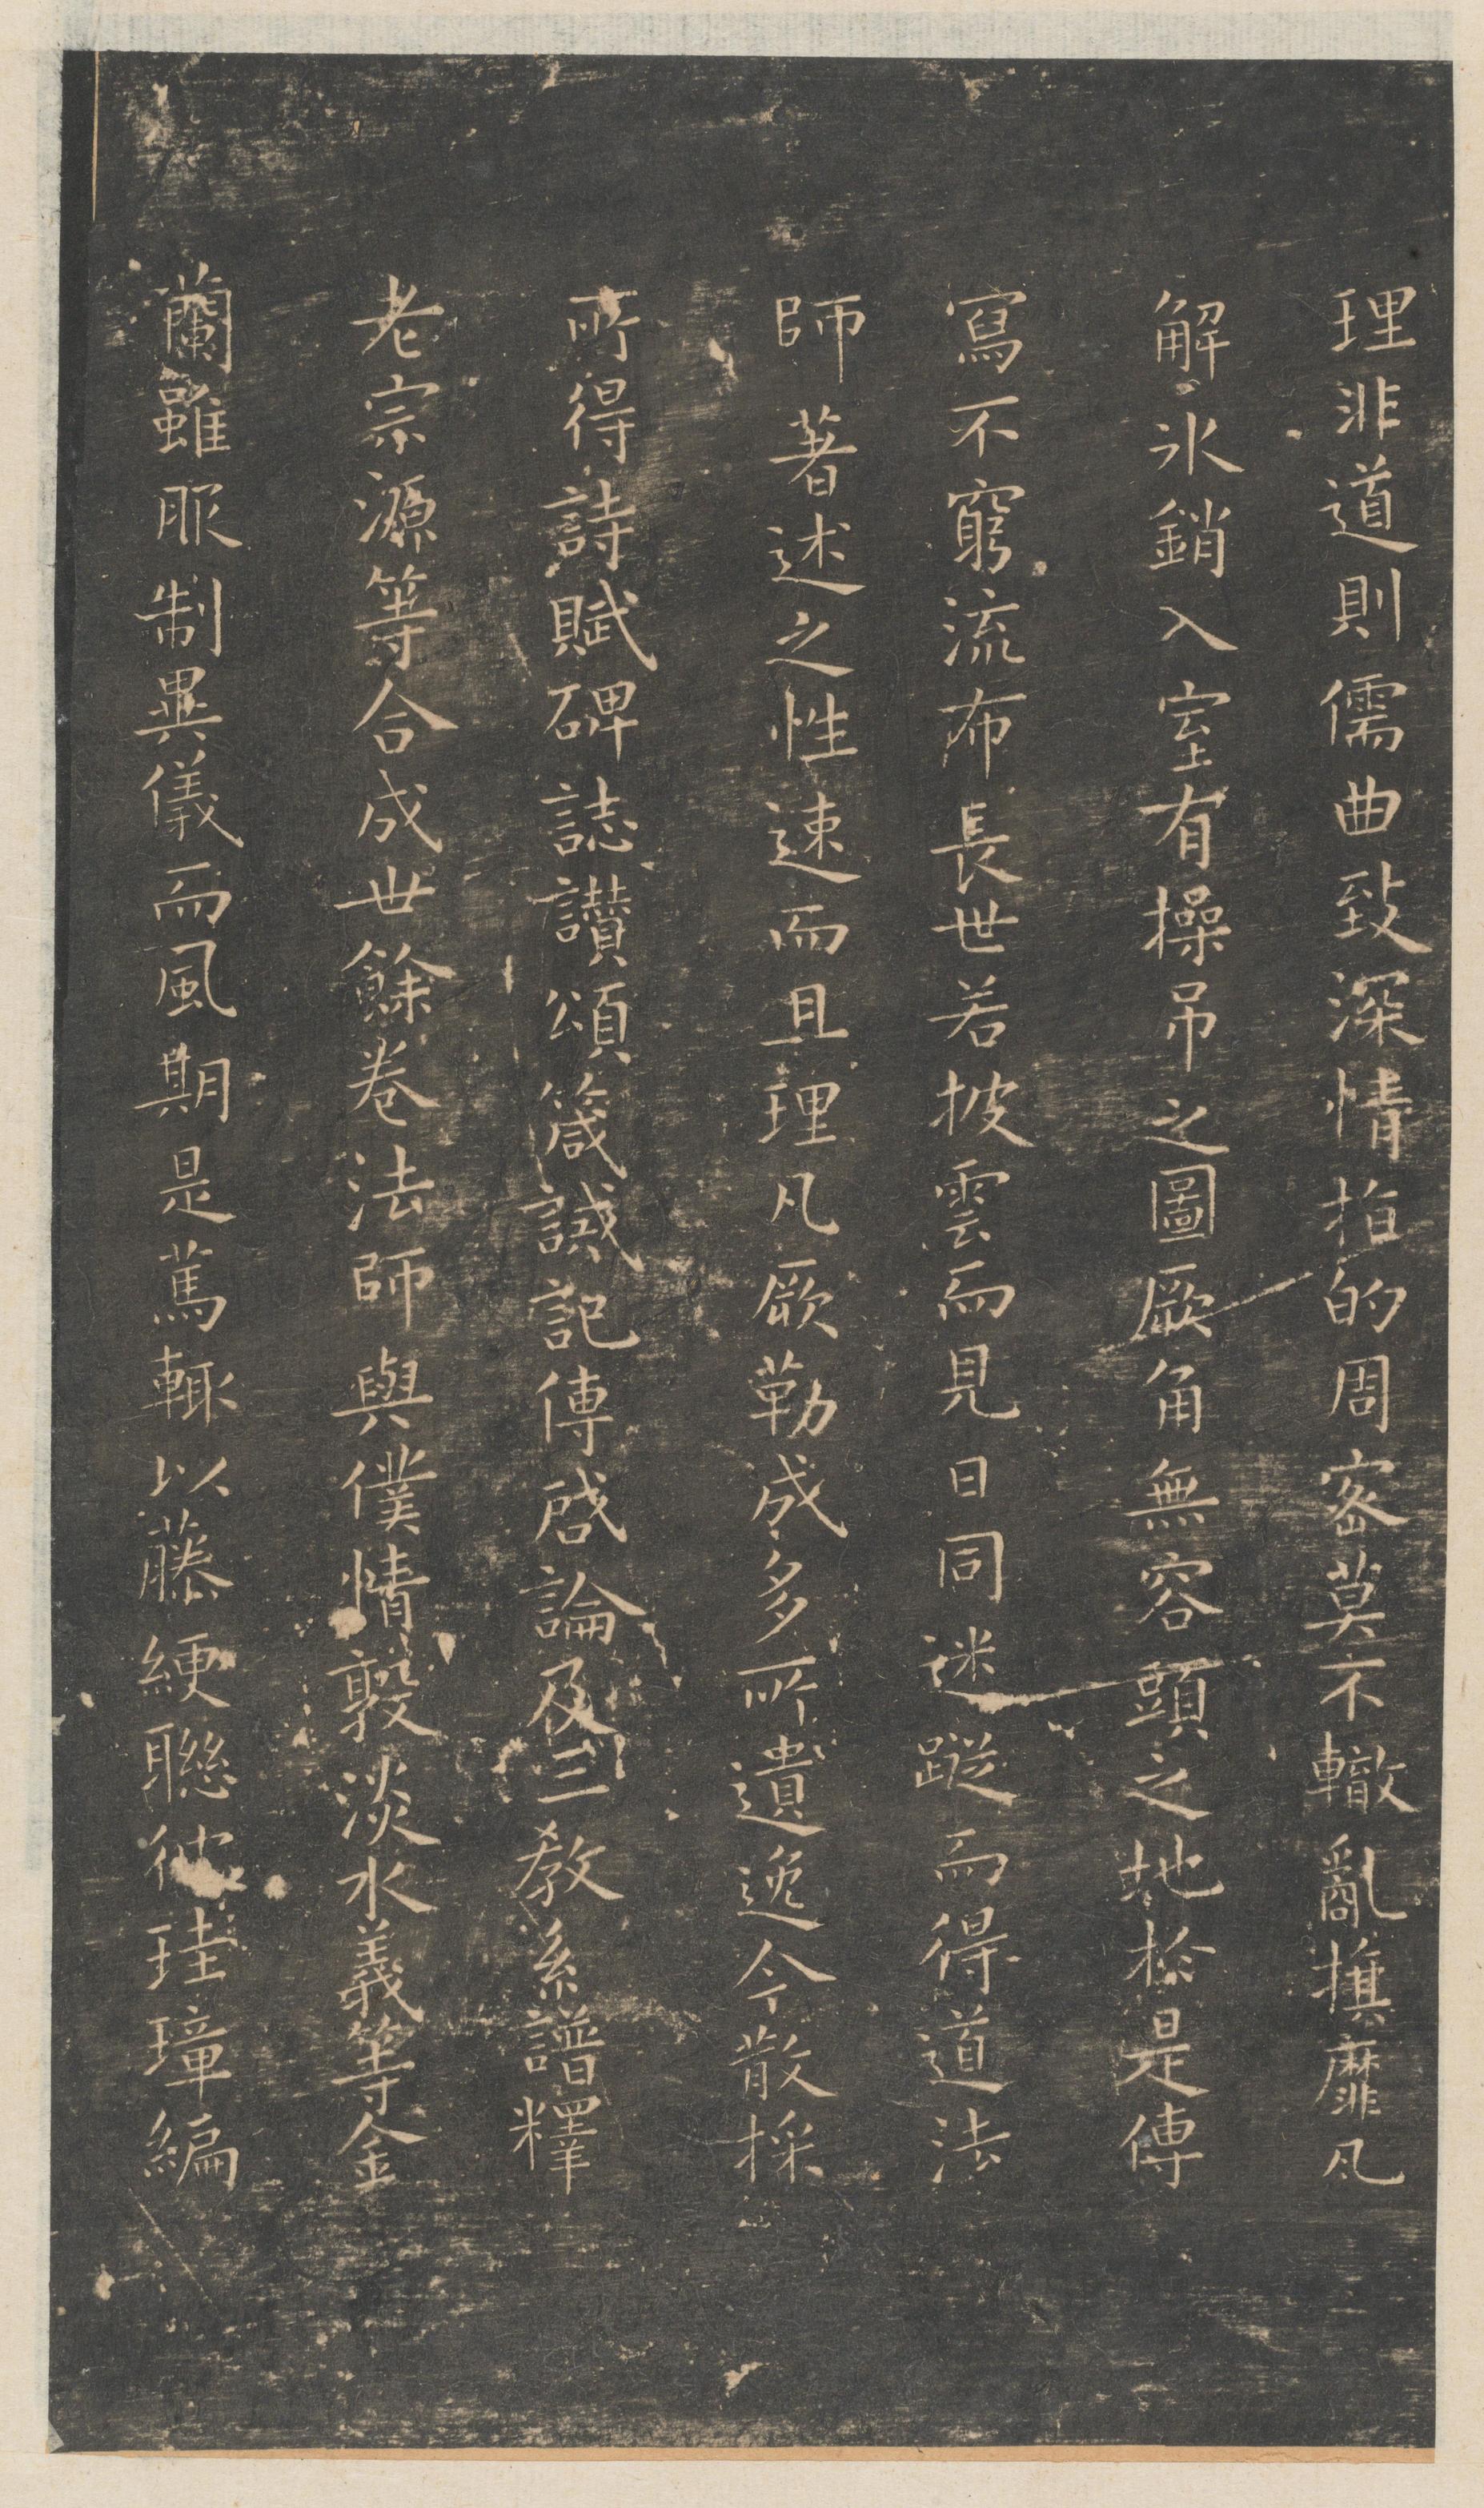 理非道則儒曲致深情指的周密莫不轍亂旗靡凡
解氷銷入室有操吊之圖厥角無容頭之地於是傳
寫不窮流布長世若披雲而見日同迷蹤而得道法
師著述之性速而且理凡厥勒成多所遺逸今散採
所得詩賦碑誌讚頌箴誡記傳啓論及三教系譜釋
老宗源等合成卅餘卷法師與僕情敦淡水義等金
蘭雖服制異儀而風期是篤輒以藤綆聯彼珪璋編